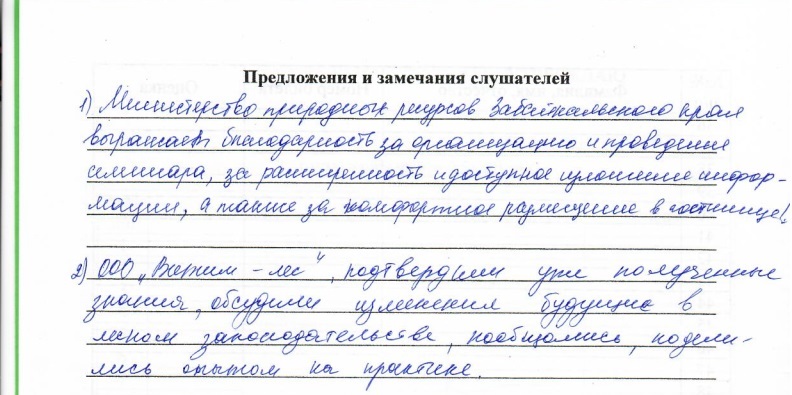 Предложения и замечания слушателей
1) Министерство природных ресурсов Забайкальского края
выражает благодарность за организацию и проведение
семинара, за расширенность и доступное изложение инфор-
мации, а также за комфортное размещение в гостинице!
2) ООО „ -лес", подтвердили уже полученные
знания, обсудили изменения будущие в
лесном законодательстве, пообщались, подели-
лись опытом на практике.